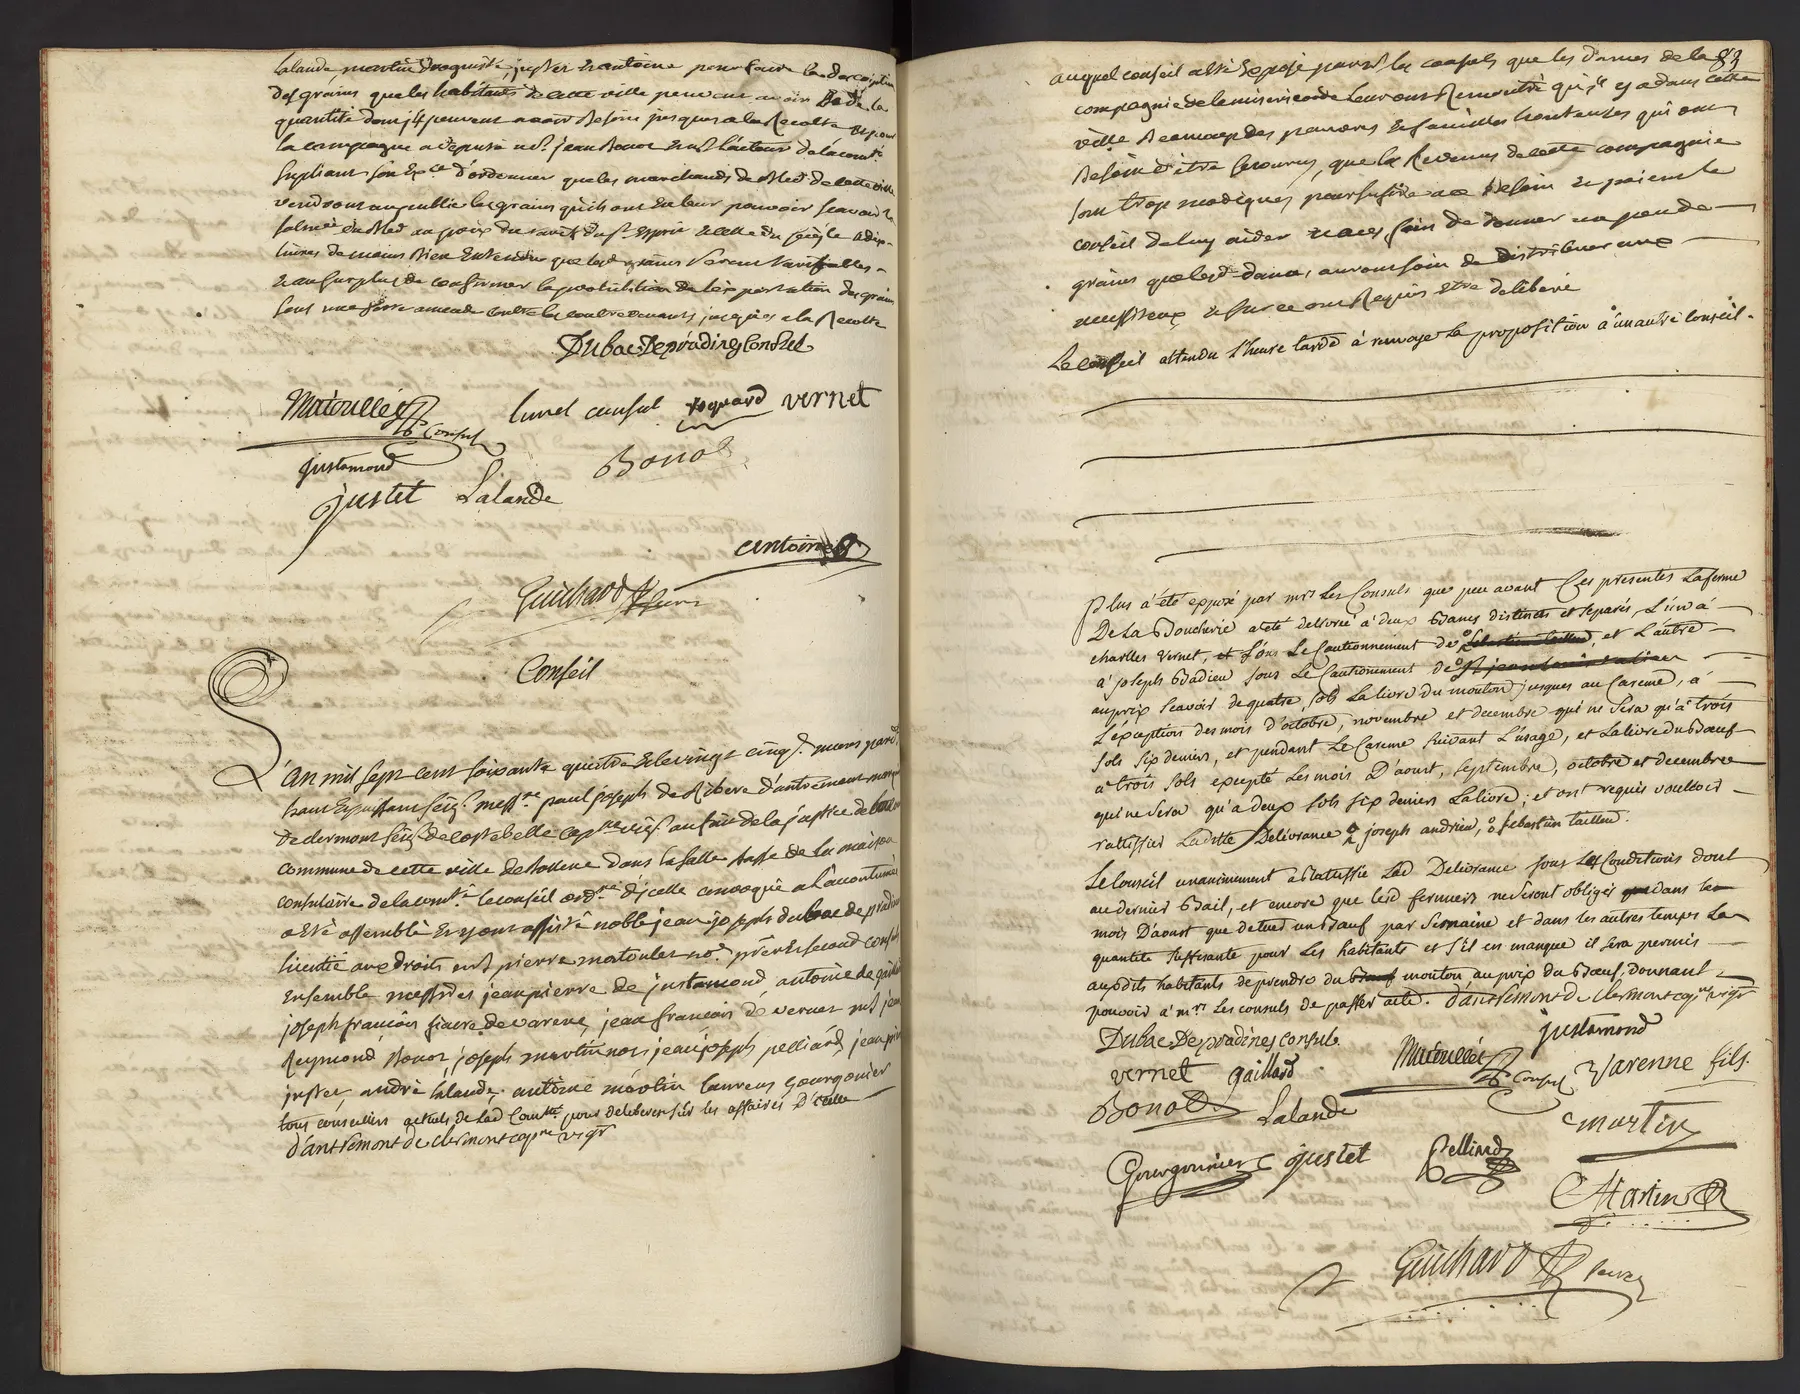 Lalande martin droguiste, justet et antoine pour faire la description
des grains que les habitants de cette ville peuvent avoir et de la
quantité dont ils peuvent avoir besoin jusques a la Recolte et pour
la compagne a deputé Mr. jean Bonot et
Supliant son Exce d'ordonner que les marchands de bled de cette ville
vendront au public les grains qu'ils ont en leur pouvoir scavoir la
salmée du bled au prix du marché du St. Esprit et celle du seigle a dix
livres de moins bien Entendu que lesd. grains seront
et au surplus de confirmer la prohibition de l'exportation des grains
sous une forte amende contre les contrevenants jusques a la Recolte
Dubac De pradines Consul
Matoullet Consul
Lunel consul
vernet
justamond
Bonot
justet Lalande
antoine
Guichard
Conseil
L'an mil sept cent soixante quatre et le vingt cinq
haut et puissant seigr. messre. paul joseph de Ribere d'antremont
De clermont seigr. de costebelle capne viguier au fait de la justice de
commune de cette ville de Bollene dans la salle basse de la maison
consulaire de la comté. le conseil ordre d'icelle convoqué a l'acoutumée
a été assemblé et y ont assisté noble jean joseph dubac de pradines
licentié aux droits et Sr pierre matoulet no.e premier et second consuls
Ensemble messires jean pierre de justamond, antoine de gaillard
joseph françois fiacre de varene, jean françois de vernet jean
Reymond Bonot, joseph martin jean joseph pelliard, jean pierre
justet, andré lalande, antoine martin laurens gourgonier
tous conseillers actuels de lad Comté. pour deliberer sur les affaires d'icelle
d'antremont De clermont capne vigr
83
auquel conseil a été Exposé par mrs les consuls que les dames de la
compagnie de la misericorde leur ont Remontré qu'il y a dans cette
ville Beaucoup des pauvres et familles honteuses qui ont
Besoin d'être secourus, que les Revenus de cette compagnie
sont trop modiques pour sufire au Besoin et prient le
conseil de luy aider et a ces fins de donner un peu de
grains que lesd. dames auront soin de distribuer aux
necessiteux et sur ce ont Requis être deliberé
Le conseil attendu l'heure tarde à renvoyé la proposition à un autre Conseil.
Plus à été exposé par mrs Les Consuls que peu avant Ces presentes La ferme
De La Boucherie a été delivrée à deux Bancs distincts et separés, L'un à
charles vernet, et sous Le Cautionnement de et L'autre
à joseph Badieu sous Le Cautionement de
au prix scavoir de quatre sols La livre du mouton jusques au Careme, à
L'éxception des mois d'octobre, novembre et decembre qui ne sera qu'a trois
sols six deniers, et pendant Le Careme suivant L'usage, et La livre du Bœuf
a trois sols excepté Les mois D'aoust, septembre, octobre et decembre
qui ne sera qu'a deux sols six deniers La livre; et ont requis vouloir
rattiffier Laditte Delivrance joseph andrieu, sebastien tailleu.
Le Conseil unanimement a Rattiffié Lad Delivrance sous Les Conditions dont
au dernier Bail, et encore que lesd fermiers ne seront obligés que dans le
mois D'aoust que de tuer un Bœuf par semaine et dans les autres temps La
quantité suffisante pour Les habitants et s'il en manque il sera permis
auxdits habitants de prendre du mouton au prix du Bœuf, Donnant
pouvoir à mrs Les consuls de passer acte. D'antremont De clermont capne vigr
Dubac De pradines consul
justamond
Matoullet Consul
vernet gaillard
Varenne fils.
Bonot Lalande
martin
Gourgonnier justet Pelliard
Martin
Guichard